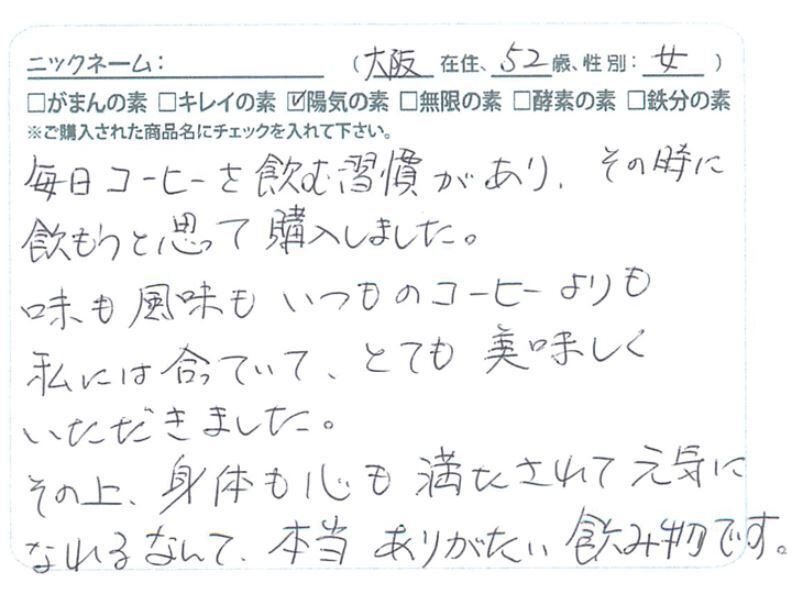 ニックネーム: (大阪 在住、52歳、性別: 女 )
□がまんの素 □キレイの素 ☑陽気の素 □無限の素 □酵素の素 □鉄分の素
※ご購入された商品名にチェックを入れて下さい。
毎日コーヒーを飲む習慣があり、その時に
飲もうと思って購入しました。
味も風味もいつものコーヒーよりも
私には合っていて、とても美味しく
いただきました。
その上、身体も心も満たされて元気に
なれるなんて、本当ありがたい飲み物です。